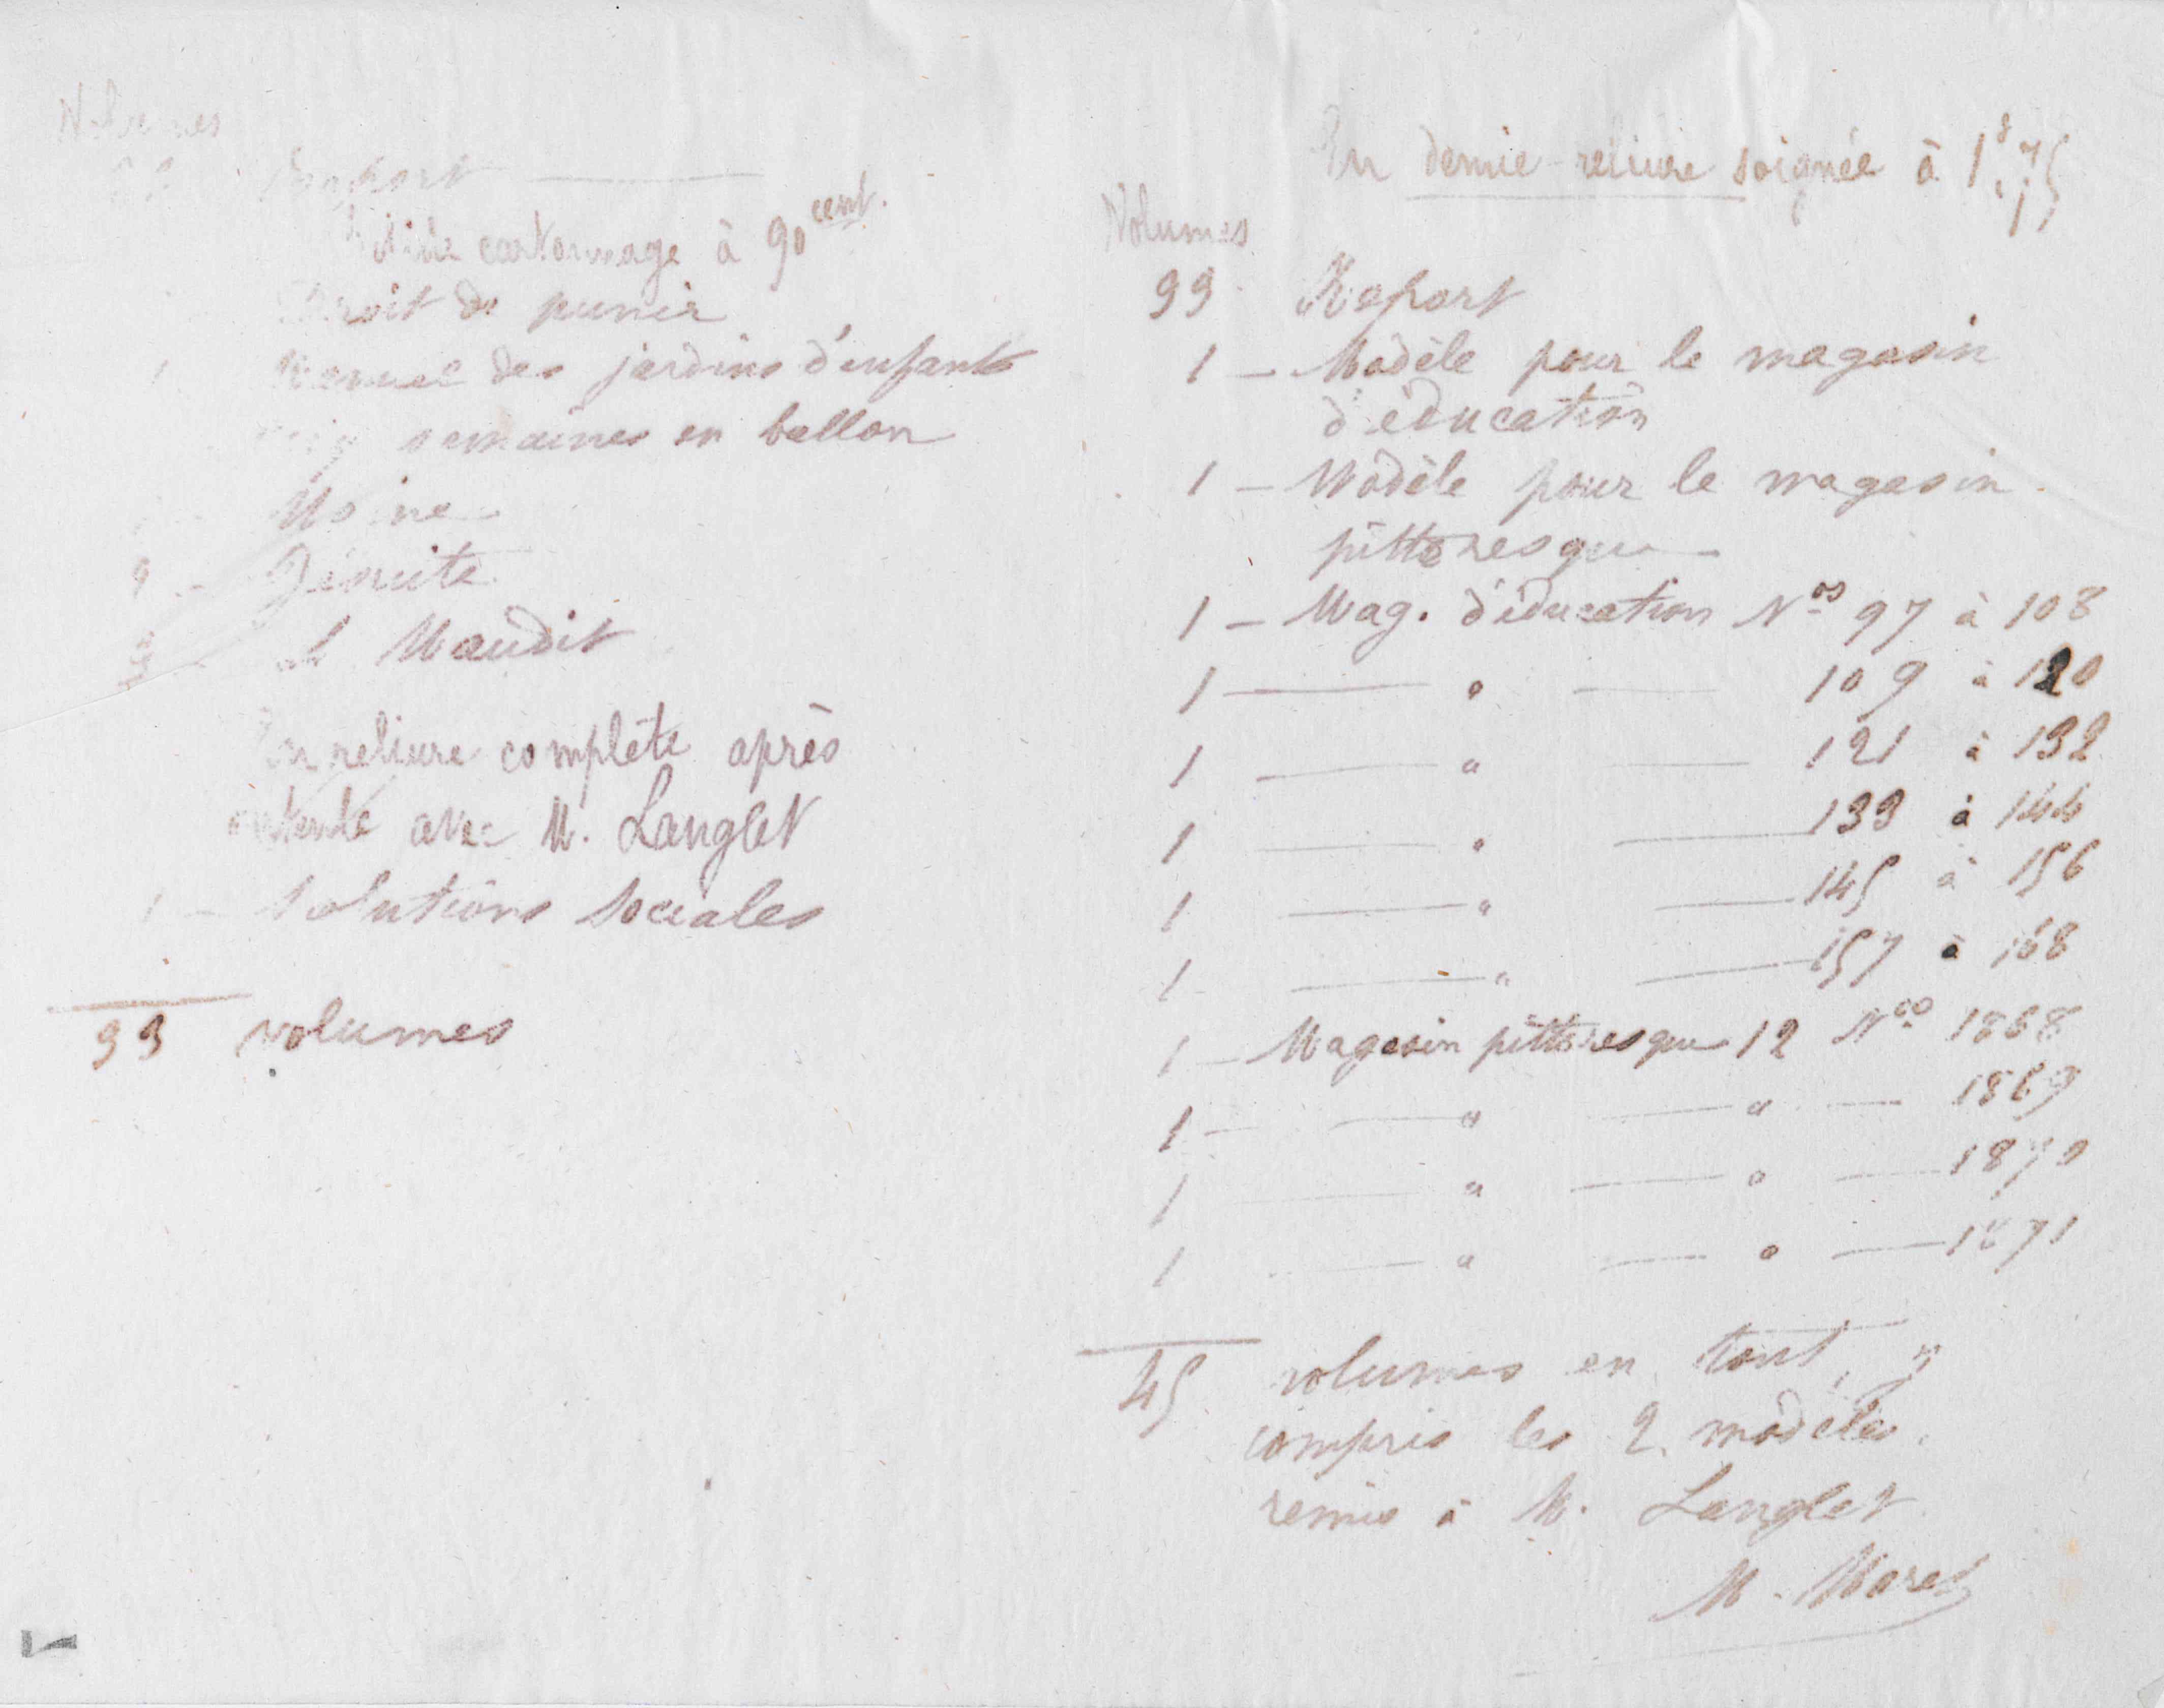 Volumes
Report
cartonnage à 90 cent.
Droit de punir
1 Manuel des jardins d'enfants
semaines en ballon
Usine
Jésuite
3 - Le Maudit
En reliure complète après
entente avec M. Langlet
1 - Solutions Sociales
33 volumes
En demie-reliure soignée à 1f,75
Volumes
33 Report
1 - Modèle pour le magasin
d'éducation
1 - Modèle pour le magasin
pittoresque
1 - Mag. d'éducation Nos 97 à 108
1 — " — 109 à 120
1 — " — 121 à 132
1 — " — 133 à 144
1 — " — 145 à 156
1 — " — 157 à 168
1 - Magasin pittoresque 12 Nos 1868
1 — " — " — 1869
1 — " — " — 1870
1 — " — " — 1871
45 volumes en tout, y
compris les 2 modèles
remis à M. Langlet
M. Moret